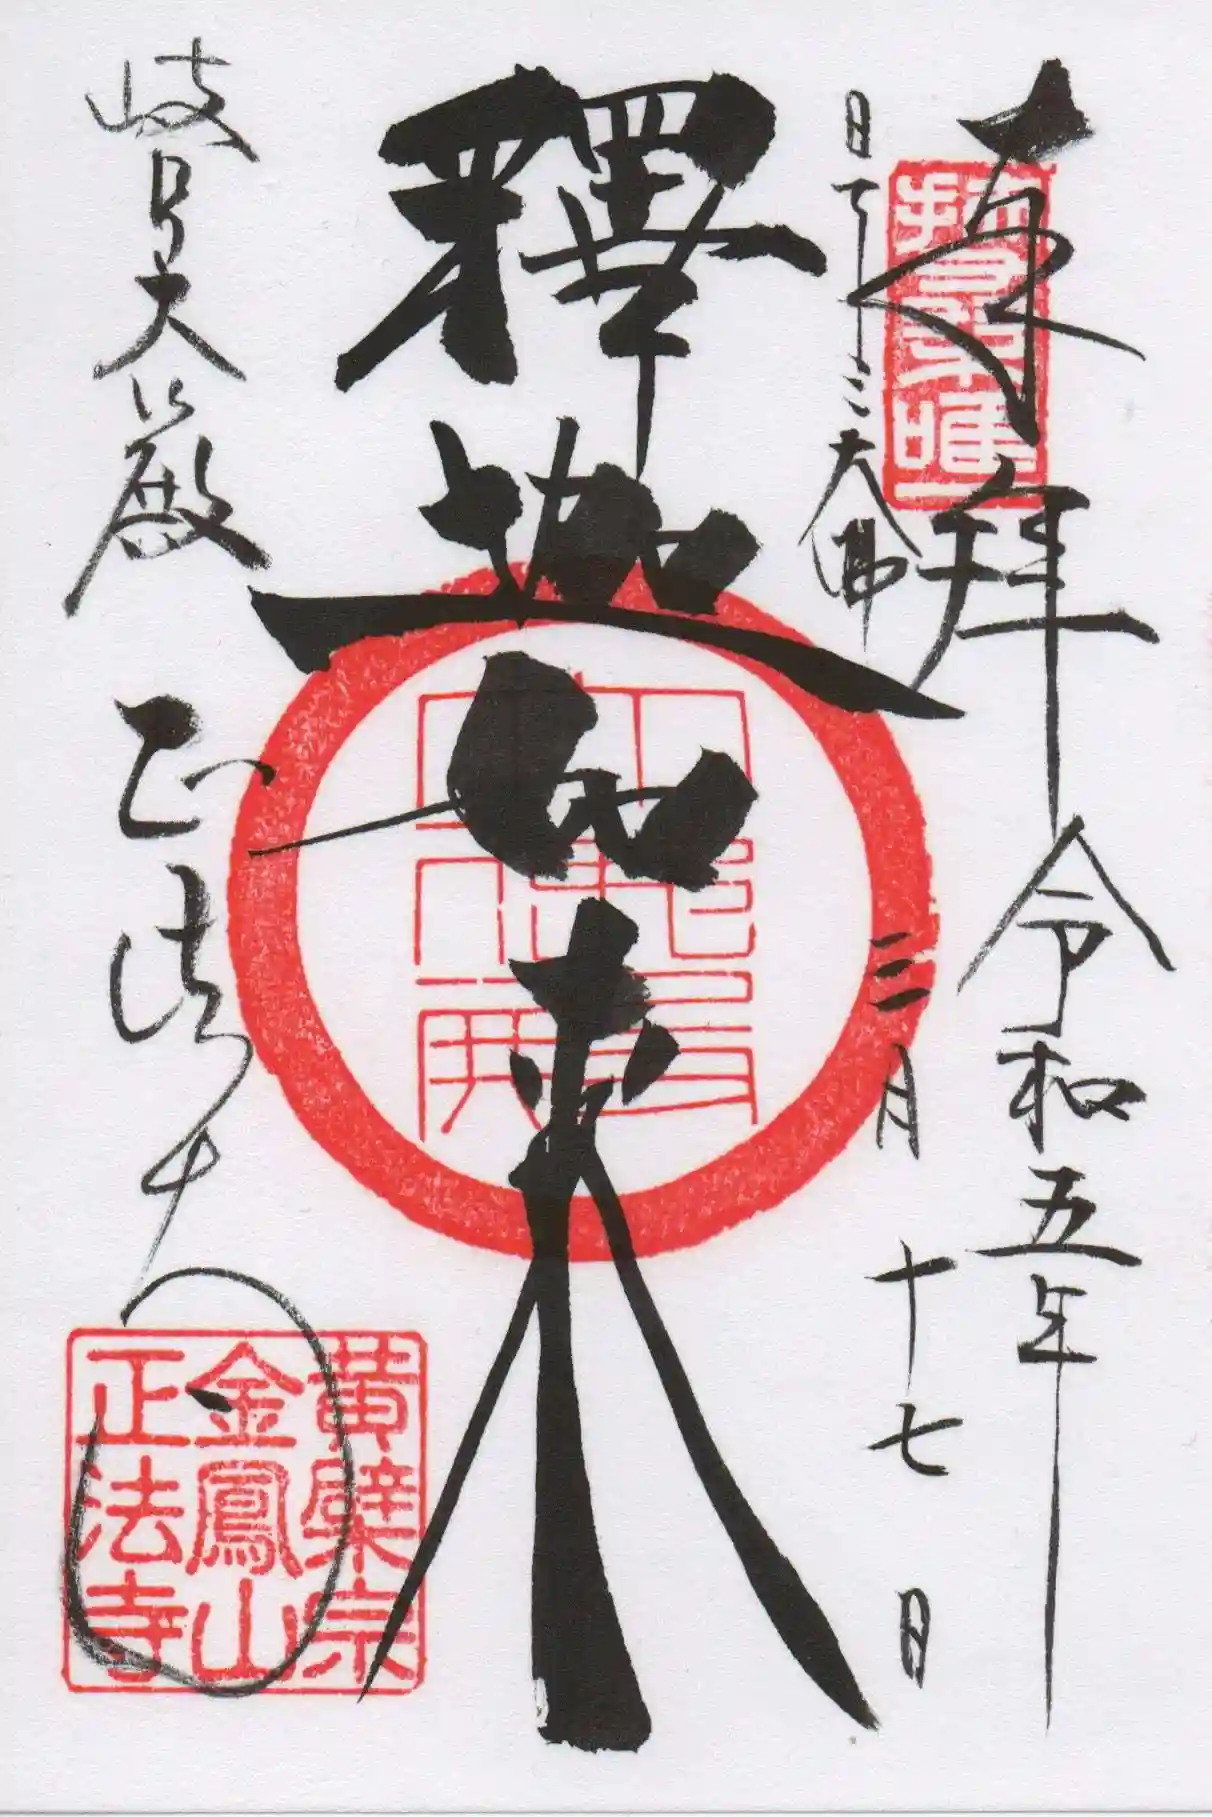 奉拝 令和五年
日本三大佛
三月十七日
釋迦如来
岐阜大仏殿 正法寺
黄檗宗
金鳳山
正法寺